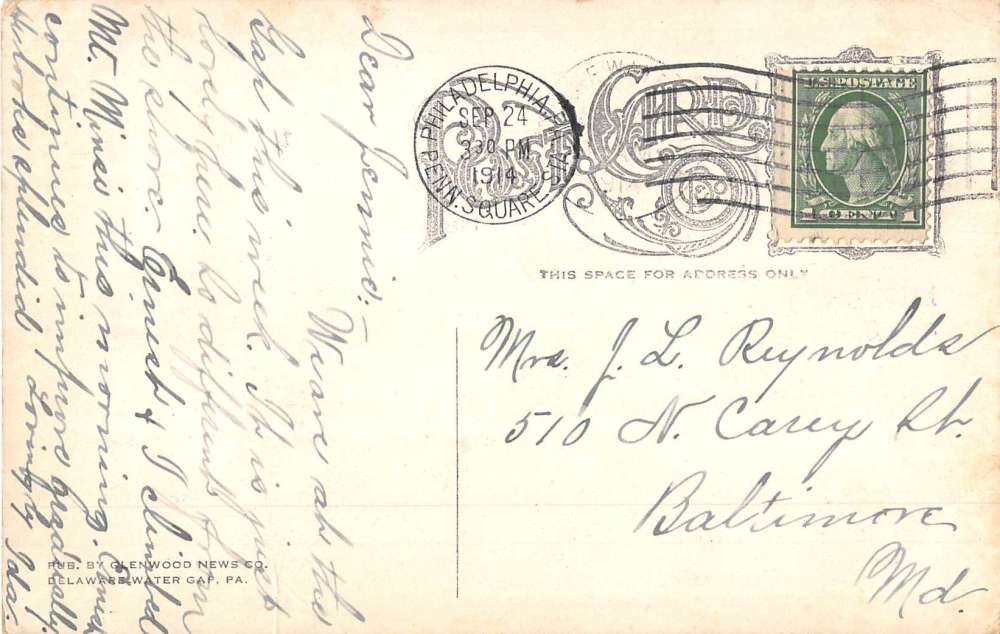 Dear Jennie:-
We are at the
Gap this week. It is just
lovely here. So different from
the shore. Ernest & I climbed
Mt. Minsi this morning. Ernest
continues to improve gradually.
He looks splendid! Lovingly Ida.
PUB. BY GLENWOOD NEWS CO.
DELAWARE WATER GAP, PA.
PHILADELPHIA, PA.
SEP 24
330 PM
1914
PENN. SQUARE STA.
POST CARD
U.S. POSTAGE
1 CENT 1
THIS SPACE FOR ADDRESS ONLY
Mrs. J. L. Reynolds
510 N. Carey St.
Baltimore
Md.